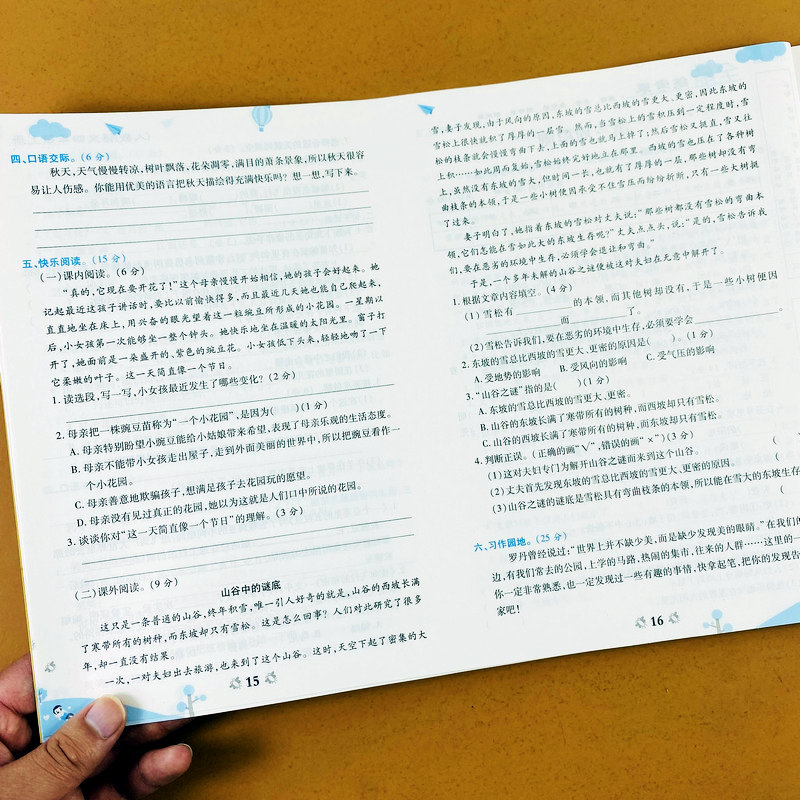 四、口语交际。(6 分)
秋天,天气慢慢转凉,树叶飘落,花朵凋零,满目的萧条景象,所以秋天很容
易让人伤感。你能用优美的语言把秋天描绘得充满快乐吗? 想一想,写下来。
五、快乐阅读。(15 分)
(一)课内阅读。(6 分)
“真的,它现在要开花了!”这个母亲慢慢开始相信,她的孩子会好起来。她
记起最近这孩子讲话时,要比以前愉快得多,而且最近几天她也能自己爬起来,
直直地坐在床上,用兴奋的眼光望着这一粒豌豆所形成的小花园。一星期以
后,小女孩第一次能够坐一整个钟头。她快乐地坐在温暖的太阳光里。窗子打
开了,她面前是一朵盛开的、紫色的豌豆花。小女孩低下头来,轻轻地吻了一下
它柔嫩的叶子。这一天简直像一个节日。
1. 读选段,写一写,小女孩最近发生了哪些变化? (2 分)
2. 母亲把一株豌豆苗称为“一个小花园”,是因为( )(1 分)
A. 母亲特别盼望小豌豆能给小姑娘带来希望,表现了母亲乐观的生活态度。
B. 母亲不能带小女孩走出屋子,走到外面美丽的世界中,所以把豌豆看作一
个小花园。
C. 母亲善意地欺骗孩子,想满足孩子去花园玩的愿望。
D. 母亲没有见过真正的花园,她以为这就是人们口中所说的花园。
3. 谈谈你对“这一天简直像一个节日”的理解。(3 分)
(二)课外阅读。(9 分)
山谷中的谜底
这只是一条普通的山谷,终年积雪,唯一引人好奇的就是,山谷的西坡长满
了寒带所有的树种,而东坡却只有雪松。这是怎么回事? 人们对此研究了很多
年,却一直没有结果。
一次,一对夫妇出去旅游,也来到了这个山谷。这时,天空下起了密集的大
15
雪,妻子发现,由于风向的原因,东坡的雪总比西坡的雪更大、更密,因此东坡的
雪松上很快就积了厚厚的一层雪。然而,当雪松上的雪积压到一定程度时,雪
松的枝条就会慢慢弯曲下去,上面的雪也就马上掉了;然后雪松又挺直,雪又往
上积……如此周而复始,雪松始终完好地立在那里。西坡的雪也压在了各种树
上,虽然没有东坡的雪大,但时间一长,也就有了厚厚的一层,那些树却没有弯
曲枝条的本领,于是一些小树便因承受不住雪压而纷纷折断,只有一些大树挺
了过来。
妻子明白了,她指着东坡的雪松对丈夫说:“那些树都没有雪松的弯曲本
领,它们怎能在雪如此大的东坡生存呢?”丈夫点点头,说:“是的,雪松告诉我
们,要在恶劣的环境中生存,必须学会退让和弯曲。”
于是,一个多年未解的山谷之谜便被这对夫妇在无意中解开了。
1. 根据文章内容填空。(4 分)
(1) 雪松有 的本领,而其他树却没有,于是一些小树便因
而 了。
(2) 雪松告诉我们,要在恶劣的环境中生存,必须要学会 。
2. 东坡的雪总比西坡的雪更大、更密的原因是( )。(1 分)
A. 受地势的影响 B. 受风向的影响 C. 受气压的影响
3. “山谷之谜”指的是( )(1 分)
A. 东坡的雪总比西坡的雪更大、更密。
B. 山谷的东坡长满了寒带所有的树种,而西坡却只有雪松。
C. 山谷的西坡长满了寒带所有的树种,而东坡却只有雪松。
4. 判断正误。(正确的画“√”,错误的画“×”)(3 分)
(1)这对夫妇专门为解开山谷之谜而来到这个山谷。 (
(2)丈夫首先发现东坡的雪总比西坡的雪更大、更密的原因。 (
(3)山谷之谜的谜底是雪松具有弯曲枝条的本领,所以能在雪大的东坡生存 (
六、习作园地。(25 分)
罗丹曾经说过:“世界上并不缺少美,而是缺少发现美的眼睛。”在我们的
边,有我们常去的公园,上学的马路,热闹的集市,往来的人群……这里的一
你一定非常熟悉,也一定发现过一些有趣的事情,快拿起笔,把你的发现告
家吧!
16